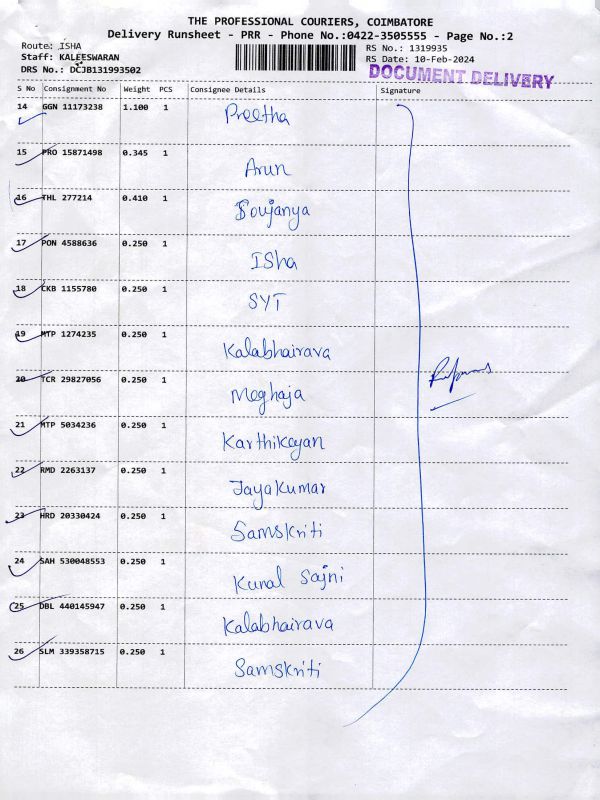 THE PROFESSIONAL COURIERS, COIMBATORE
Delivery Runsheet - PRR - Phone No.:0422-3505555 - Page No.:2
Route: ISHA
RS No.: 1319935
Staff: KALEESWARAN
RS Date: 10-Feb-2024
DRS No.: DCJB131993502
DOCUMENT DELIVERY
S No Consignment No Weight PCS Consignee Details Signature
14 GGN 11173238 1.100 1 Preetha
15 PRO 15871498 0.345 1 Arun
16 THL 277214 0.410 1 Soujanya
17 PON 4588636 0.250 1 ISha
18 CKB 1155780 0.250 1 SYT
19 MTP 1274235 0.250 1 Kalabhairava
20 TCR 29827056 0.250 1 Meghaja
21 MTP 5034236 0.250 1 Karthikeyan
22 RMD 2263137 0.250 1 Jayakumar
23 HRD 20330424 0.250 1 Samskriti
24 SAH 530048553 0.250 1 Kunal Sajni
25 DBL 440145947 0.250 1 Kalabhairava
26 SLM 339358715 0.250 1 Samskriti